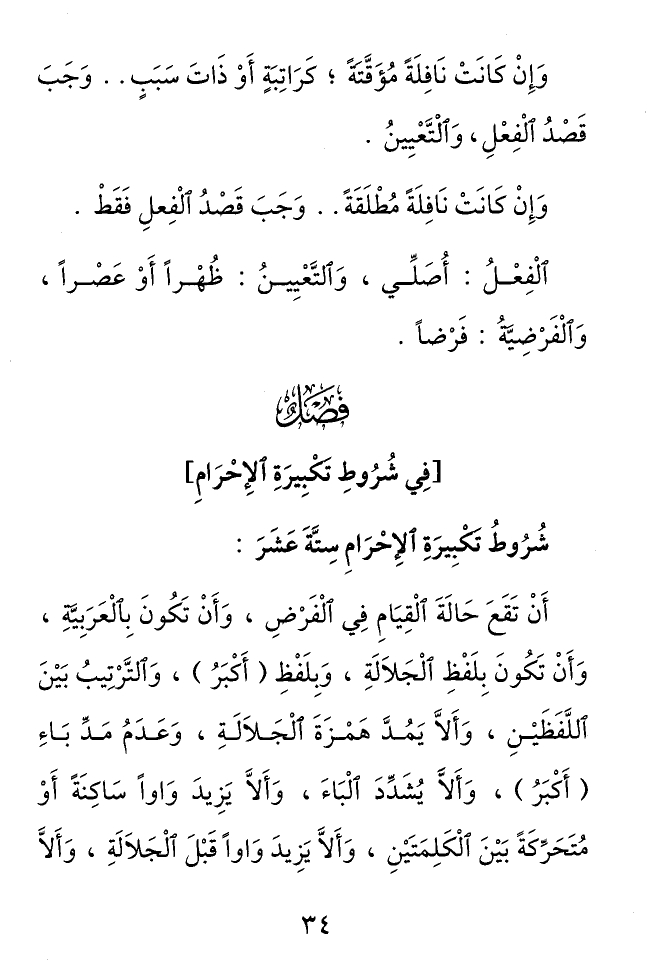 وَإِنْ كَانَتْ نَافِلَةً مُؤَقَّتَةً ؛ كَرَاتِبَةٍ أَوْ ذَاتَ سَبَبٍ . . وَجَبَ
قَصْدُ ٱلْفِعْلِ ، وَٱلْتَّعْيِينُ .
وَإِنْ كَانَتْ نَافِلَةً مُطْلَقَةً . . وَجَبَ قَصْدُ ٱلْفِعلِ فَقَطْ .
ٱلْفِعْلُ : أُصَلِّي ، وَٱلتَّعْيِينُ : ظُهْراً أَوْ عَصْراً ،
وَٱلْفَرْضِيَّةُ : فَرْضاً .
فَصْلٌ
[فِي شُرُوطِ تَكْبِيرَةِ ٱلإِحْرَامِ]
شُرُوطُ تَكْبِيرَةِ ٱلإِحْرَامِ سِتَّةَ عَشَرَ :
أَنْ تَقَعَ حَالَةَ ٱلْقِيَامِ فِي ٱلْفَرْضِ ، وَأَنْ تَكُونَ بِٱلْعَرَبِيَّةِ ،
وَأَنْ تَكُونَ بِلَفْظِ ٱلْجَلاَلَةِ ، وَبِلَفْظِ ( أَكْبَرُ ) ، وَٱلتَّرْتِيبُ بَيْنَ
ٱللَّفْظَيْنِ ، وَأَلاَّ يَمُدَّ هَمْزَةَ ٱلْجَلاَلَةِ ، وَعَدَمُ مَدِّ بَاءِ
( أَكْبَرُ ) ، وَأَلاَّ يُشَدِّدَ ٱلْبَاءَ ، وَأَلاَّ يَزِيدَ وَاواً سَاكِنَةً أَوْ
مُتَحَرِّكَةً بَيْنَ ٱلْكَلِمَتَيْنِ ، وَأَلاَّ يَزِيدَ وَاواً قَبْلَ ٱلْجَلاَلَةِ ، وَأَلاَّ
٣٤